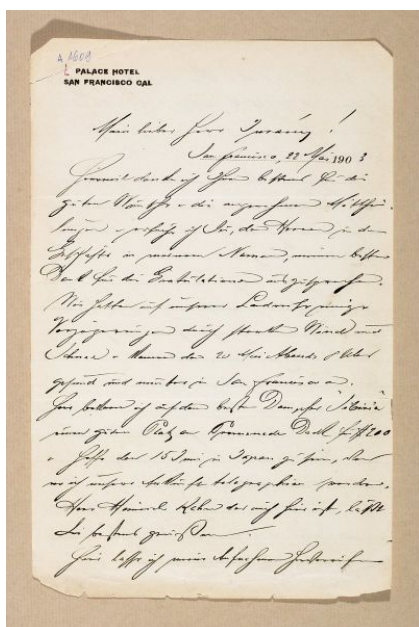 A 1609
PALACE HOTEL
SAN FRANCISCO CAL
Mein lieber Herr !
San Francisco, 22 Mai 1903
Hiermit danke ich Ihnen bestens für die
guten Wünsche & die angenehmen Mitthei-
lungen & ich Sie, den Herren in dem
Geschäfte in meinem Namen, meinen besten
Dank für die Gratulationen auszusprechen.
Wir hatten auf unserer einige
Verzögerungen durch starken Wind und
Schnee & kamen den 20 Mai Abends 8 Uhr
gesund und munter in San Francisco an.
Hier bekam ich auf dem besten Dampfer
einen guten Platz am Promenade Deck für $ 200
& hoffe den 15 Juni in Japan zu sein, von
wo ich unsere Ankunft telegraphieren werde.
Herr Heinrich der auch hier ist, läßt
Sie bestens grüßen.
Hier lasse ich meine